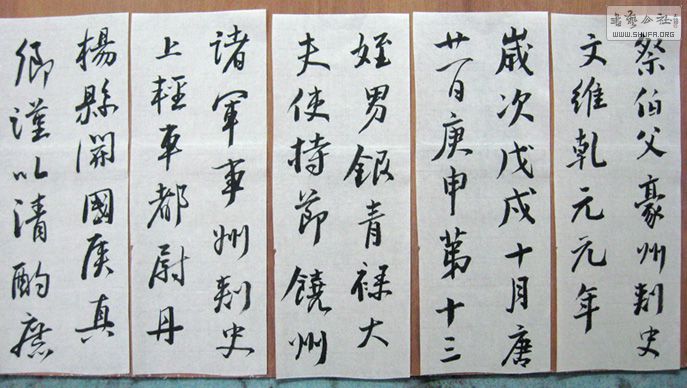 祭伯父豪州刺史
文維乾元元年
歲次戊戌十月唐
廿一日庚申第十三
姪男銀青祿大
夫使持節饒州
諸軍事州刺史
上輕車都尉丹
楊縣開國侯真
卿謹以清酌庶
書藝公社
WWW.SHUFA.ORG